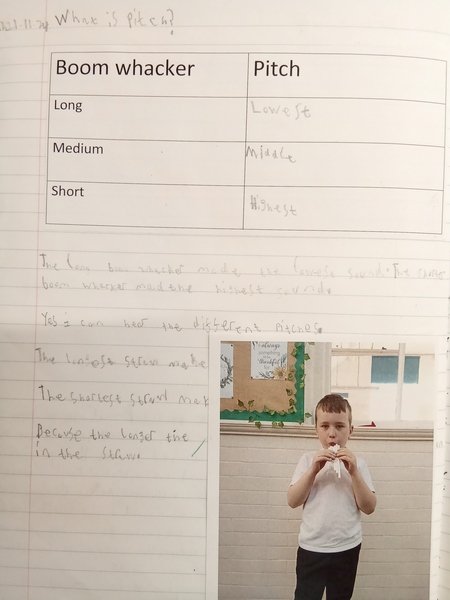 What is pitch?
Boom whacker Pitch
Long Lowest
Medium Middle
Short Highest
The long boom whacker made the lowest sound. The short
boom whacker maid the highest sound.
Yes i can hear the different pitches
The longest straw make
The shortest straw mak
Because the longer the
in the straw.
always
something
thankful